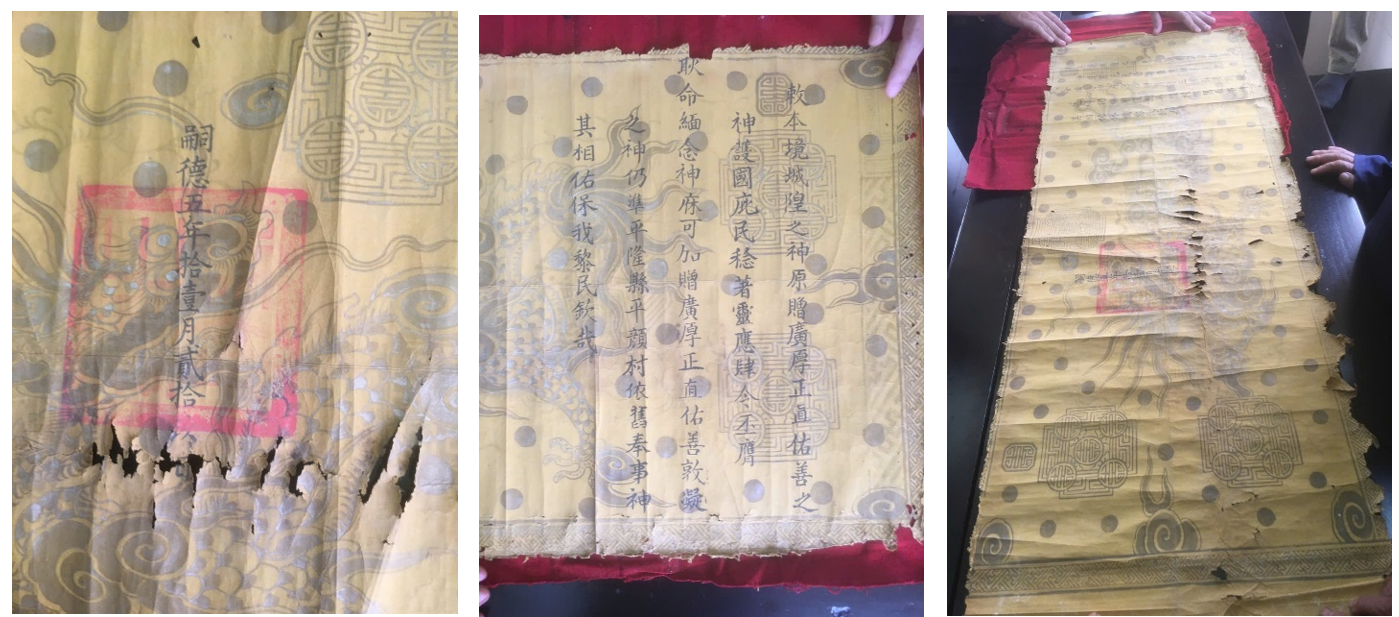 嗣德五年拾壹月貳拾
敕本境城隍之神原贈廣厚正直佑善之
神護國庇民稔著靈應肆今丕膺
耿命緬念神庥可加贈廣厚正直佑善敦凝
之神仍準平隆縣平顔村依舊奉事神
其相佑保我黎民欽哉